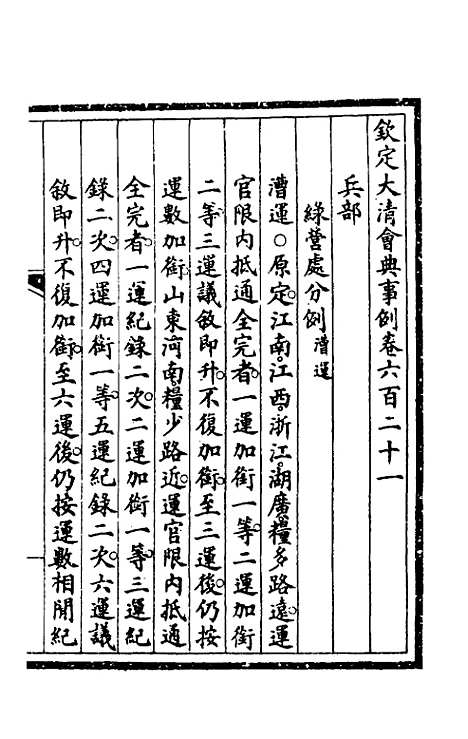 欽定大清會典事例卷六百二十一
兵部
綠營處分例漕運
漕運○原定江南江西浙江湖廣糧多路遠運
官限內抵通全完者一運加銜一等二運加銜
二等三運議敘即升不復加銜至三運後仍按
運數加銜山東河南糧少路近運官限內抵通
全完者一運紀錄二次二運加銜一等三運紀
錄二次四運加銜一等五運紀錄二次六運議
敘即升不復加銜至六運後仍按運數相間紀